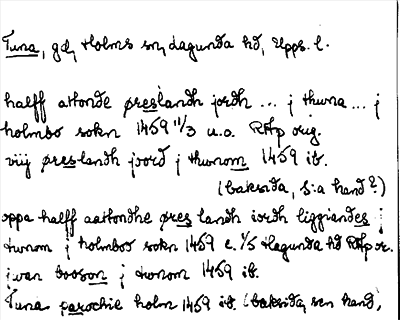 Tuna, gd, Holms sn, Lagunda hd, Upps. l.
halff attonde øreslandh jordh ... j thwna ... j
holmbo sokn 1459 11/3 u.o. RAp orig.
viij øreslandh jord j thunom 1459 ib.
(baksida, s:a hand?)
oppa halff aattondhe øres landh iordh liggiandes j
twnom j holmboo sokn 1459 e. 1/5 Hagunda hd RAp or.
j twnom 1459 ib.
Tuna parochie holm 1459 ib. (baksida, sen hand,